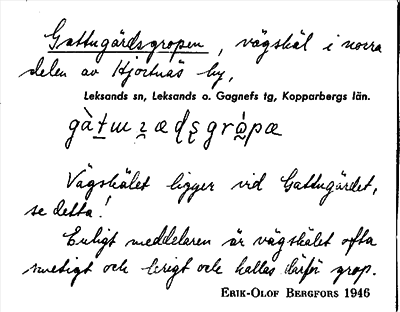 Gattugärdsgropen, vägskäl i norra
delen av Hjortnäs by,
Leksands sn, Leksands o. Gagnefs tg, Kopparbergs län.
Vägskälet ligger vid Gattugärdet,
se detta!
Enligt meddelaren är vägskälet ofta
smetigt och lerigt och kallas därför grop.
ERIK-OLOF BERGFORS 1946